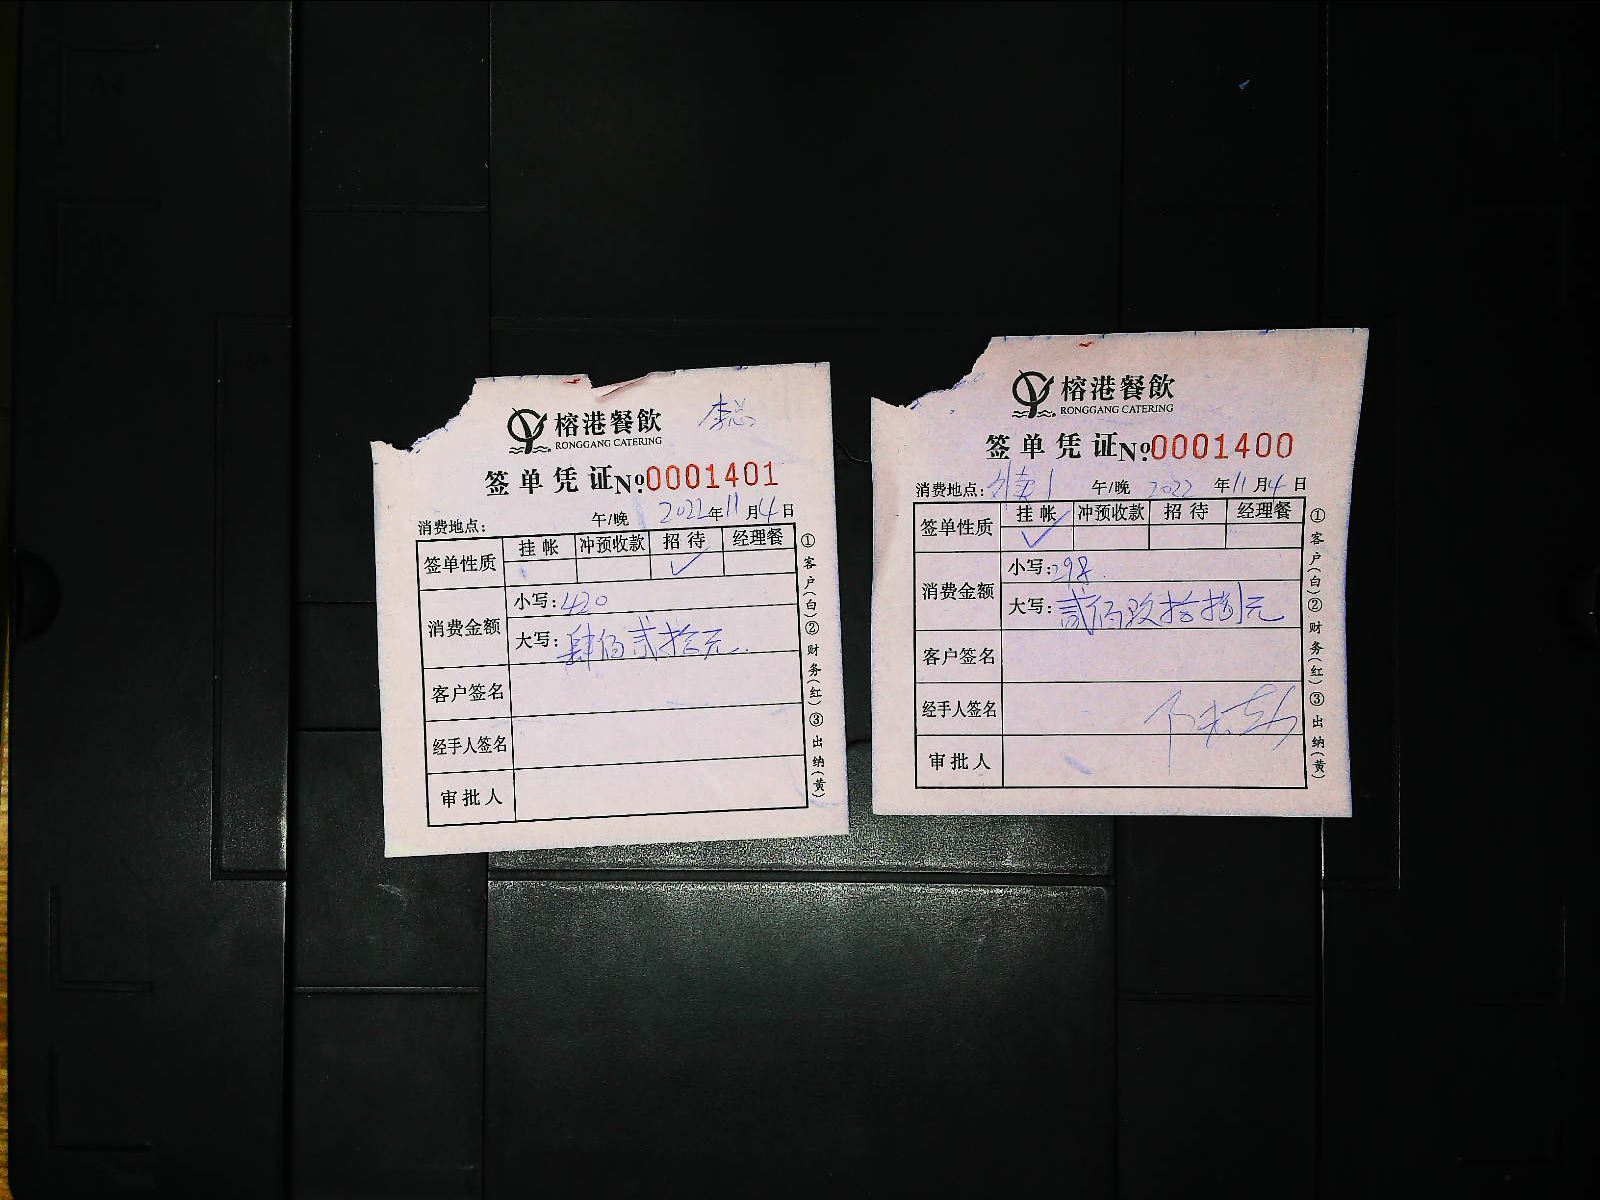 榕港餐飲
RONGGANG CATERING
李总
签单凭证 No.0001401
消费地点: 午/晚 2022年11月4日
签单性质 挂帐 冲预收款 招待 经理餐
✓
消费金额 小写: 420
大写: 肆佰贰拾元
客户签名
经手人签名
审批人
①客户(白)②财务(红)③出纳(黄)
榕港餐飲
RONGGANG CATERING
签单凭证 No.0001400
消费地点: 外卖1 午/晚 2022年11月4日
签单性质 挂帐 冲预收款 招待 经理餐
✓
消费金额 小写: 298
大写: 贰佰玖拾捌元
客户签名
经手人签名
审批人
①客户(白)②财务(红)③出纳(黄)